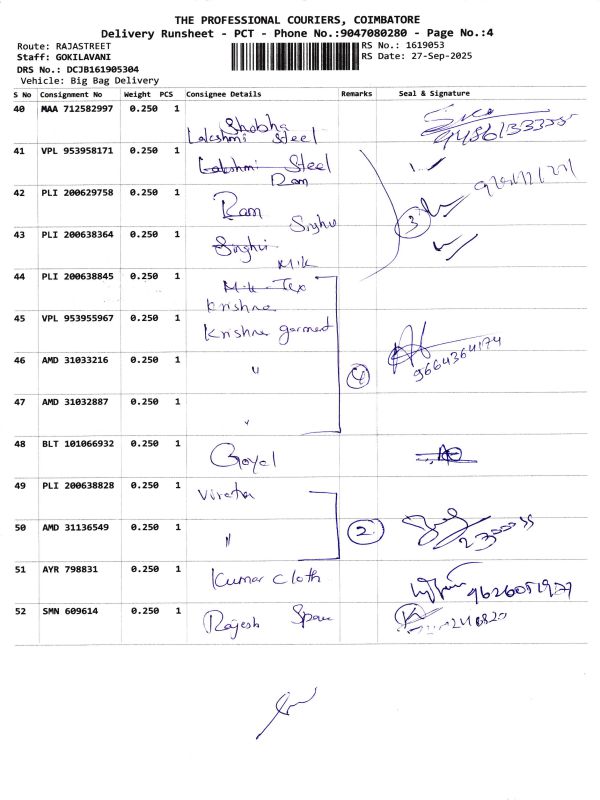 THE PROFESSIONAL COURIERS, COIMBATORE
Delivery Runsheet - PCT - Phone No.:9047080280 - Page No.:4
Route: RAJASTREET
RS No.: 1619053
Staff: GOKILAVANI
RS Date: 27-Sep-2025
DRS No.: DCJB161905304
Vehicle: Big Bag Delivery
S No Consignment No Weight PCS Consignee Details Remarks Seal & Signature
40 MAA 712582997 0.250 1 Shobha
Lakshmi Steel
41 VPL 953958171 0.250 1 Lakshmi Steel
Ram
42 PLI 200629758 0.250 1 Ram
3
43 PLI 200638364 0.250 1 Singhvi
44 PLI 200638845 0.250 1 M.K. Tex
Krishna
45 VPL 953955967 0.250 1 Krishna garment
46 AMD 31033216 0.250 1 " 4 9664364174
47 AMD 31032887 0.250 1 "
48 BLT 101066932 0.250 1 Goyal
49 PLI 200638828 0.250 1
50 AMD 31136549 0.250 1 " 2
51 AYR 798831 0.250 1 Kumar Cloth 9626051977
52 SMN 609614 0.250 1 Rajesh